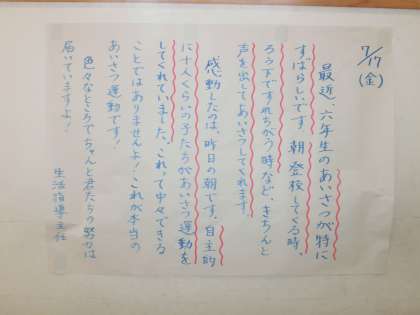 7/17
(金)
最近、六年生のあいさつが特に
すばらしいです。朝登校してくる時、
ろう下ですれちがう時など、きちんと
声を出してあいさつしてくれます。
感動したのは、昨日の朝です。自主的
に十人くらいの子たちがあいさつ運動を
してくれていました。これって中々できる
ことではありませんよ!これが本当の
あいさつ運動です!
色々なところでちゃんと君たちの努力は
届いていますよ!
生活指導主任